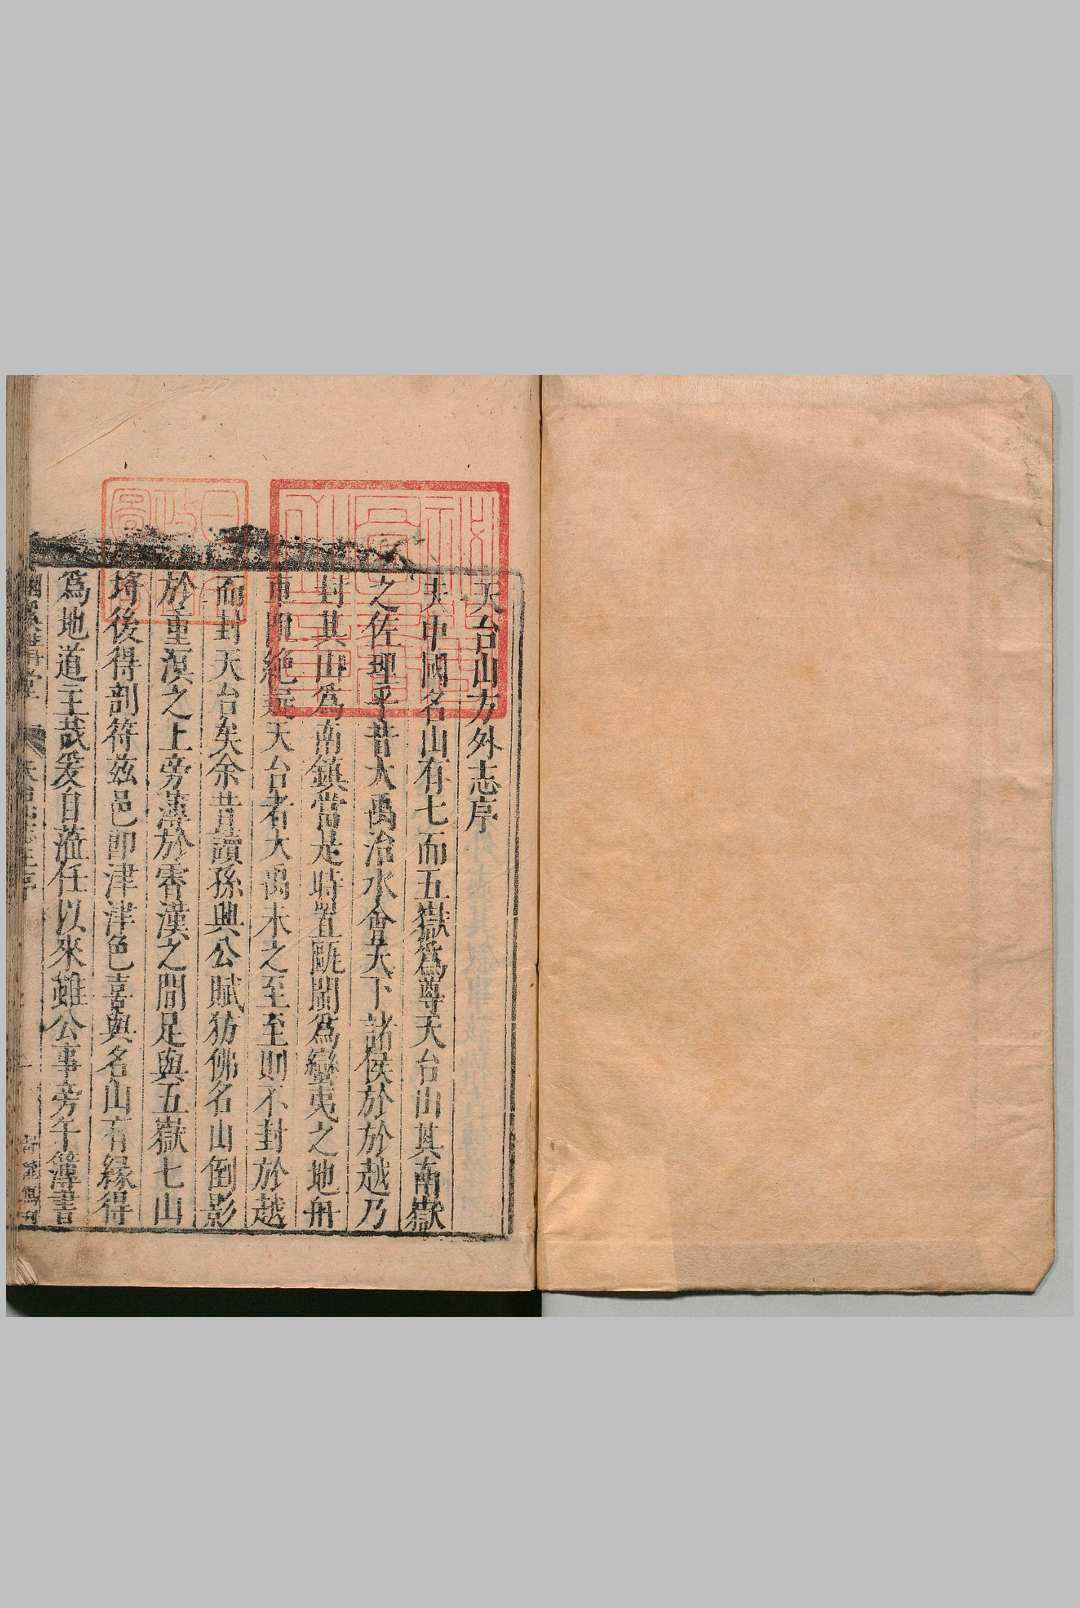 天台山方外志序
夫中國名山有七而五嶽爲尊天台山其南嶽
之佐理乎昔大禹治水會天下諸侯於於越乃
封其山爲南鎮當是時置甌閩爲蠻夷之地舟
車四絶天台者大禹未之至至則不封於越
而封天台矣余昔讀孫興公賦彷佛名山倒影
於重溟之上旁薄於霄漢之間足與五嶽七山
埒後得剖符兹邑卽津津色喜與名山有緣得
爲地道主哉爰自蒞任以來雖公事旁午簿書
幽溪講堂